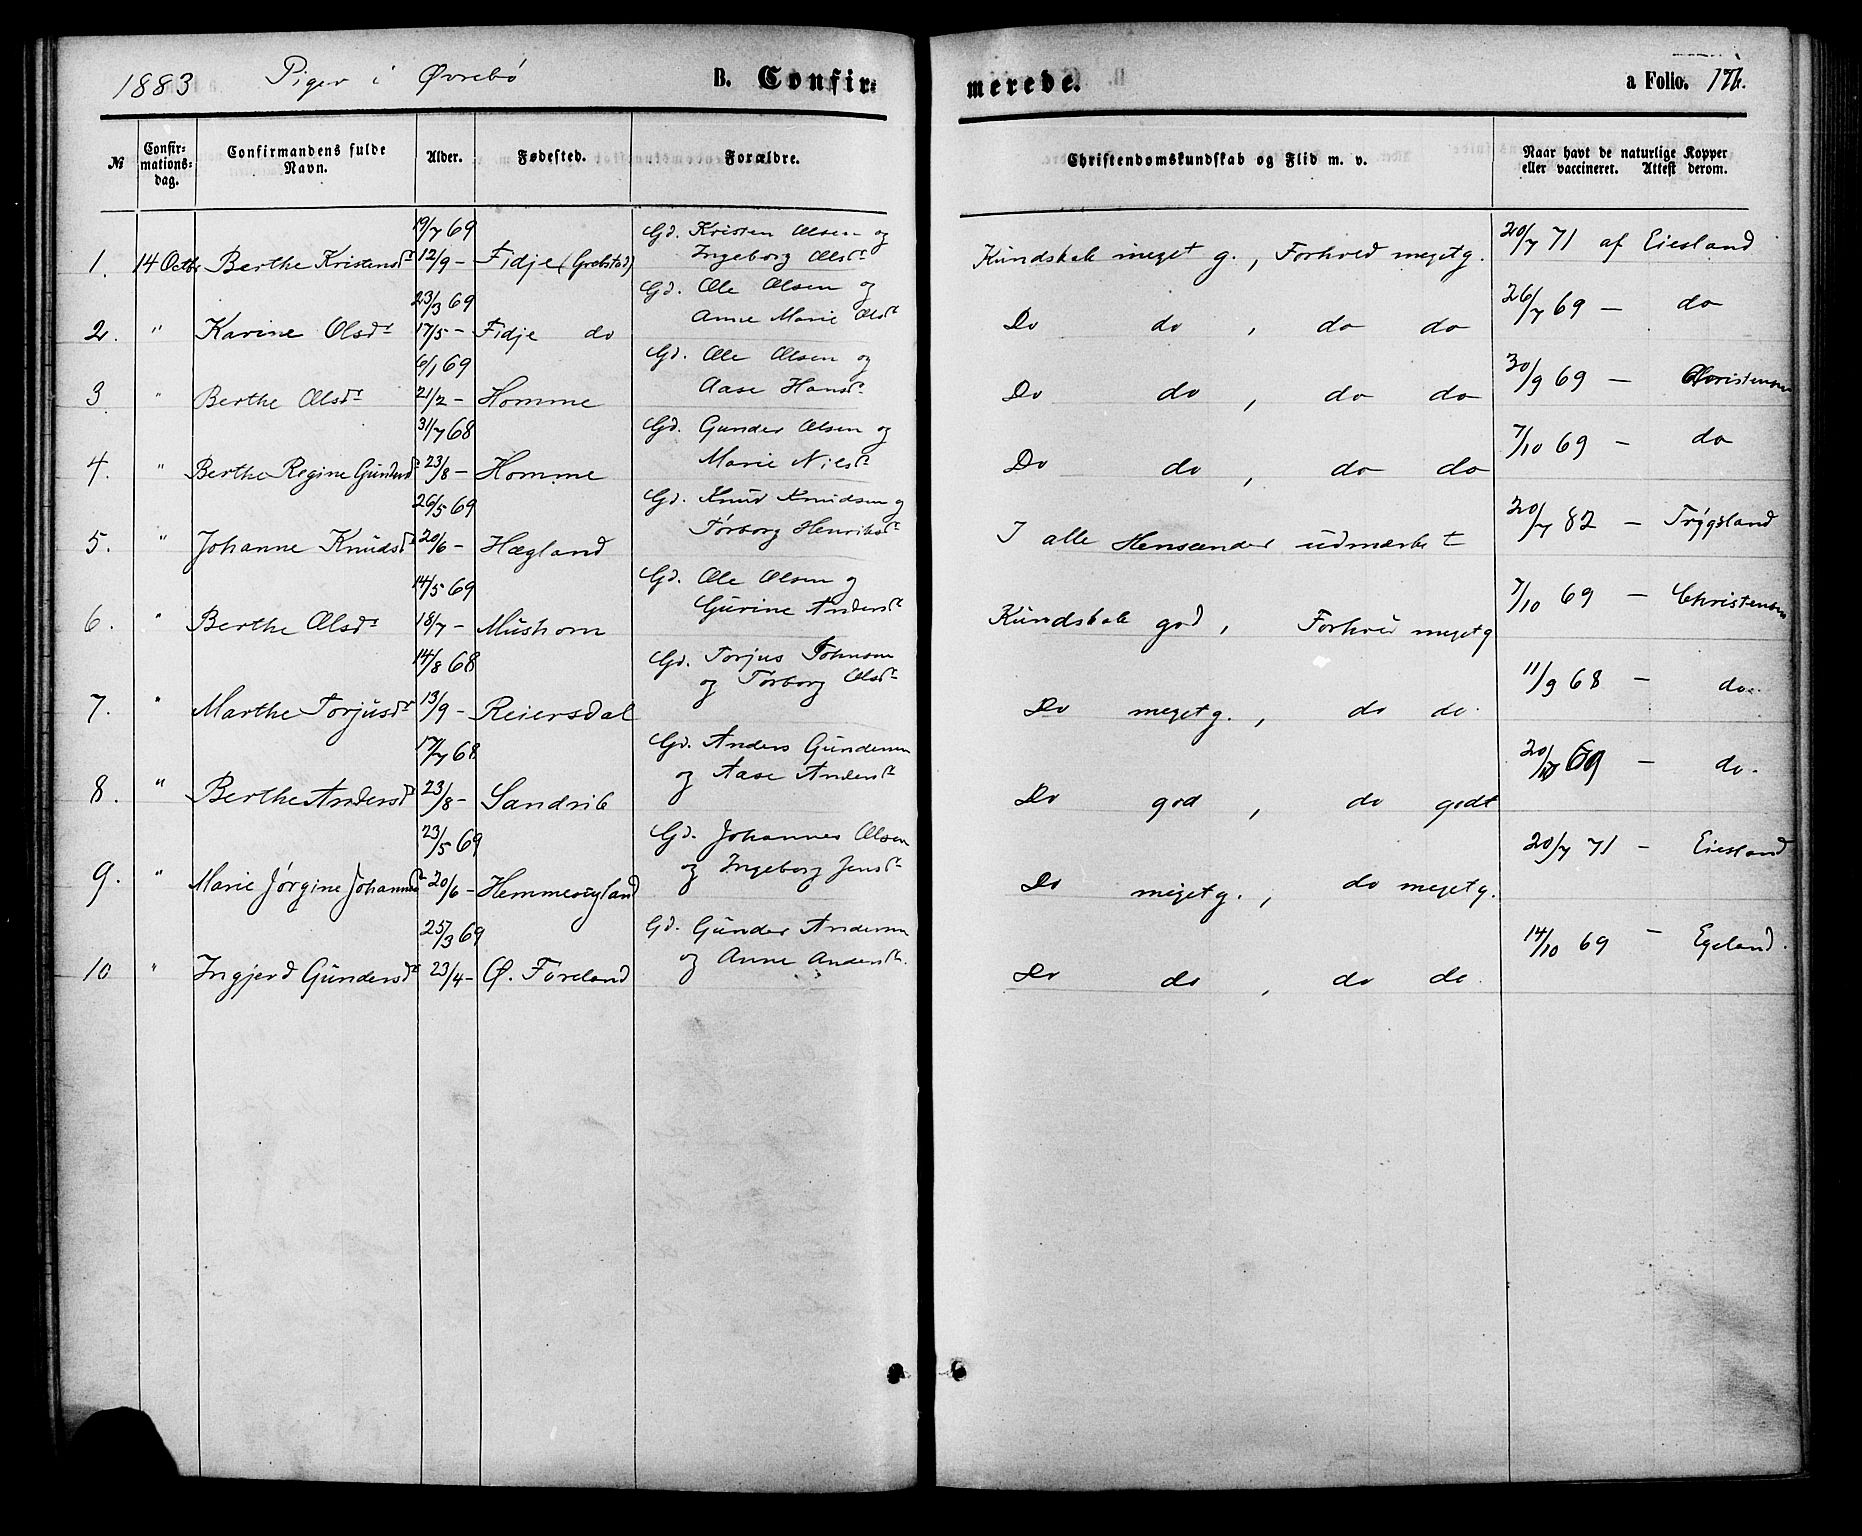 1883 Piger i Øvrebø B. Confir= merede. a Folio. 176.
№ Confir=mations=dag. Confirmandens fulde Navn. Alder. Fødested. Forældre. Christendomskundskab og Flid m. v. Naar havt de naturlige Kopper eller vaccineret. Attest derom.
19/7 69 Gd. Kristen Olsen og
1. 14 Octbr Berthe Kristensdt 12/9 – Fidje (Grebstad) Ingeborg Olsdt Kundskab meget g., Forhold meget g. 20/7 71 af Eiesland
23/3 69 Gd. Ole Olsen og
2. " Karine Olsdt 17/5 – Fidje do Anne Marie Olsdt Do do, do do 26/7 69 – do
6/1 69 Gd. Ole Olsen og
3 " Berthe Olsdt 21/2 – Homme Aase Hansdt Do do, do do 30/9 69 – Christensen
31/7 68 Gd. Gunder Olsen og
4. " Berthe Regine Gundersdt 23/8 – Homme Marie Nilsdt Do do, do do 7/10 69 – do
26/5 69 Gd. Knud Knudsen og
5. " Johanne Knudsdt 20/6 – Hægland Tørborg Henriksdt I alle Henseender udmærket 20/7 82 – Trygsland
14/5 69 Gd. Ole Olsen og
6. " Berthe Olsdt 18/7 – Mushom Gurine Andersdt Kundskab god, Forhold meget g 7/10 69 – Christensen
14/8 68 Gd. Torjus Tohnsen
7. " Marthe Torjusdt 13/9 – Reiersdal og Tørborg Olsdt Do meget g., do do. 11/9 68 – do.
17/7 68 Gd. Anders Gundersen
8. " Berthe Andersdt 23/8 – Sandrib og Aase Andersdt Do god, do godt 69 – do.
23/5 69 Gd. Johannes Olsen
9. " Marie Jørgine Johannesdt 20/6 – og Ingeborg Jensdt Do meget g., do meget g. 20/7 71 – Eiesland
25/3 69 Gd. Gunder Andersen
10 " Ingjerd Gundersdt 23/4 – Ø. Føreland og Anne Andersdt. Do do, do do. 14/10 69 – Egeland.